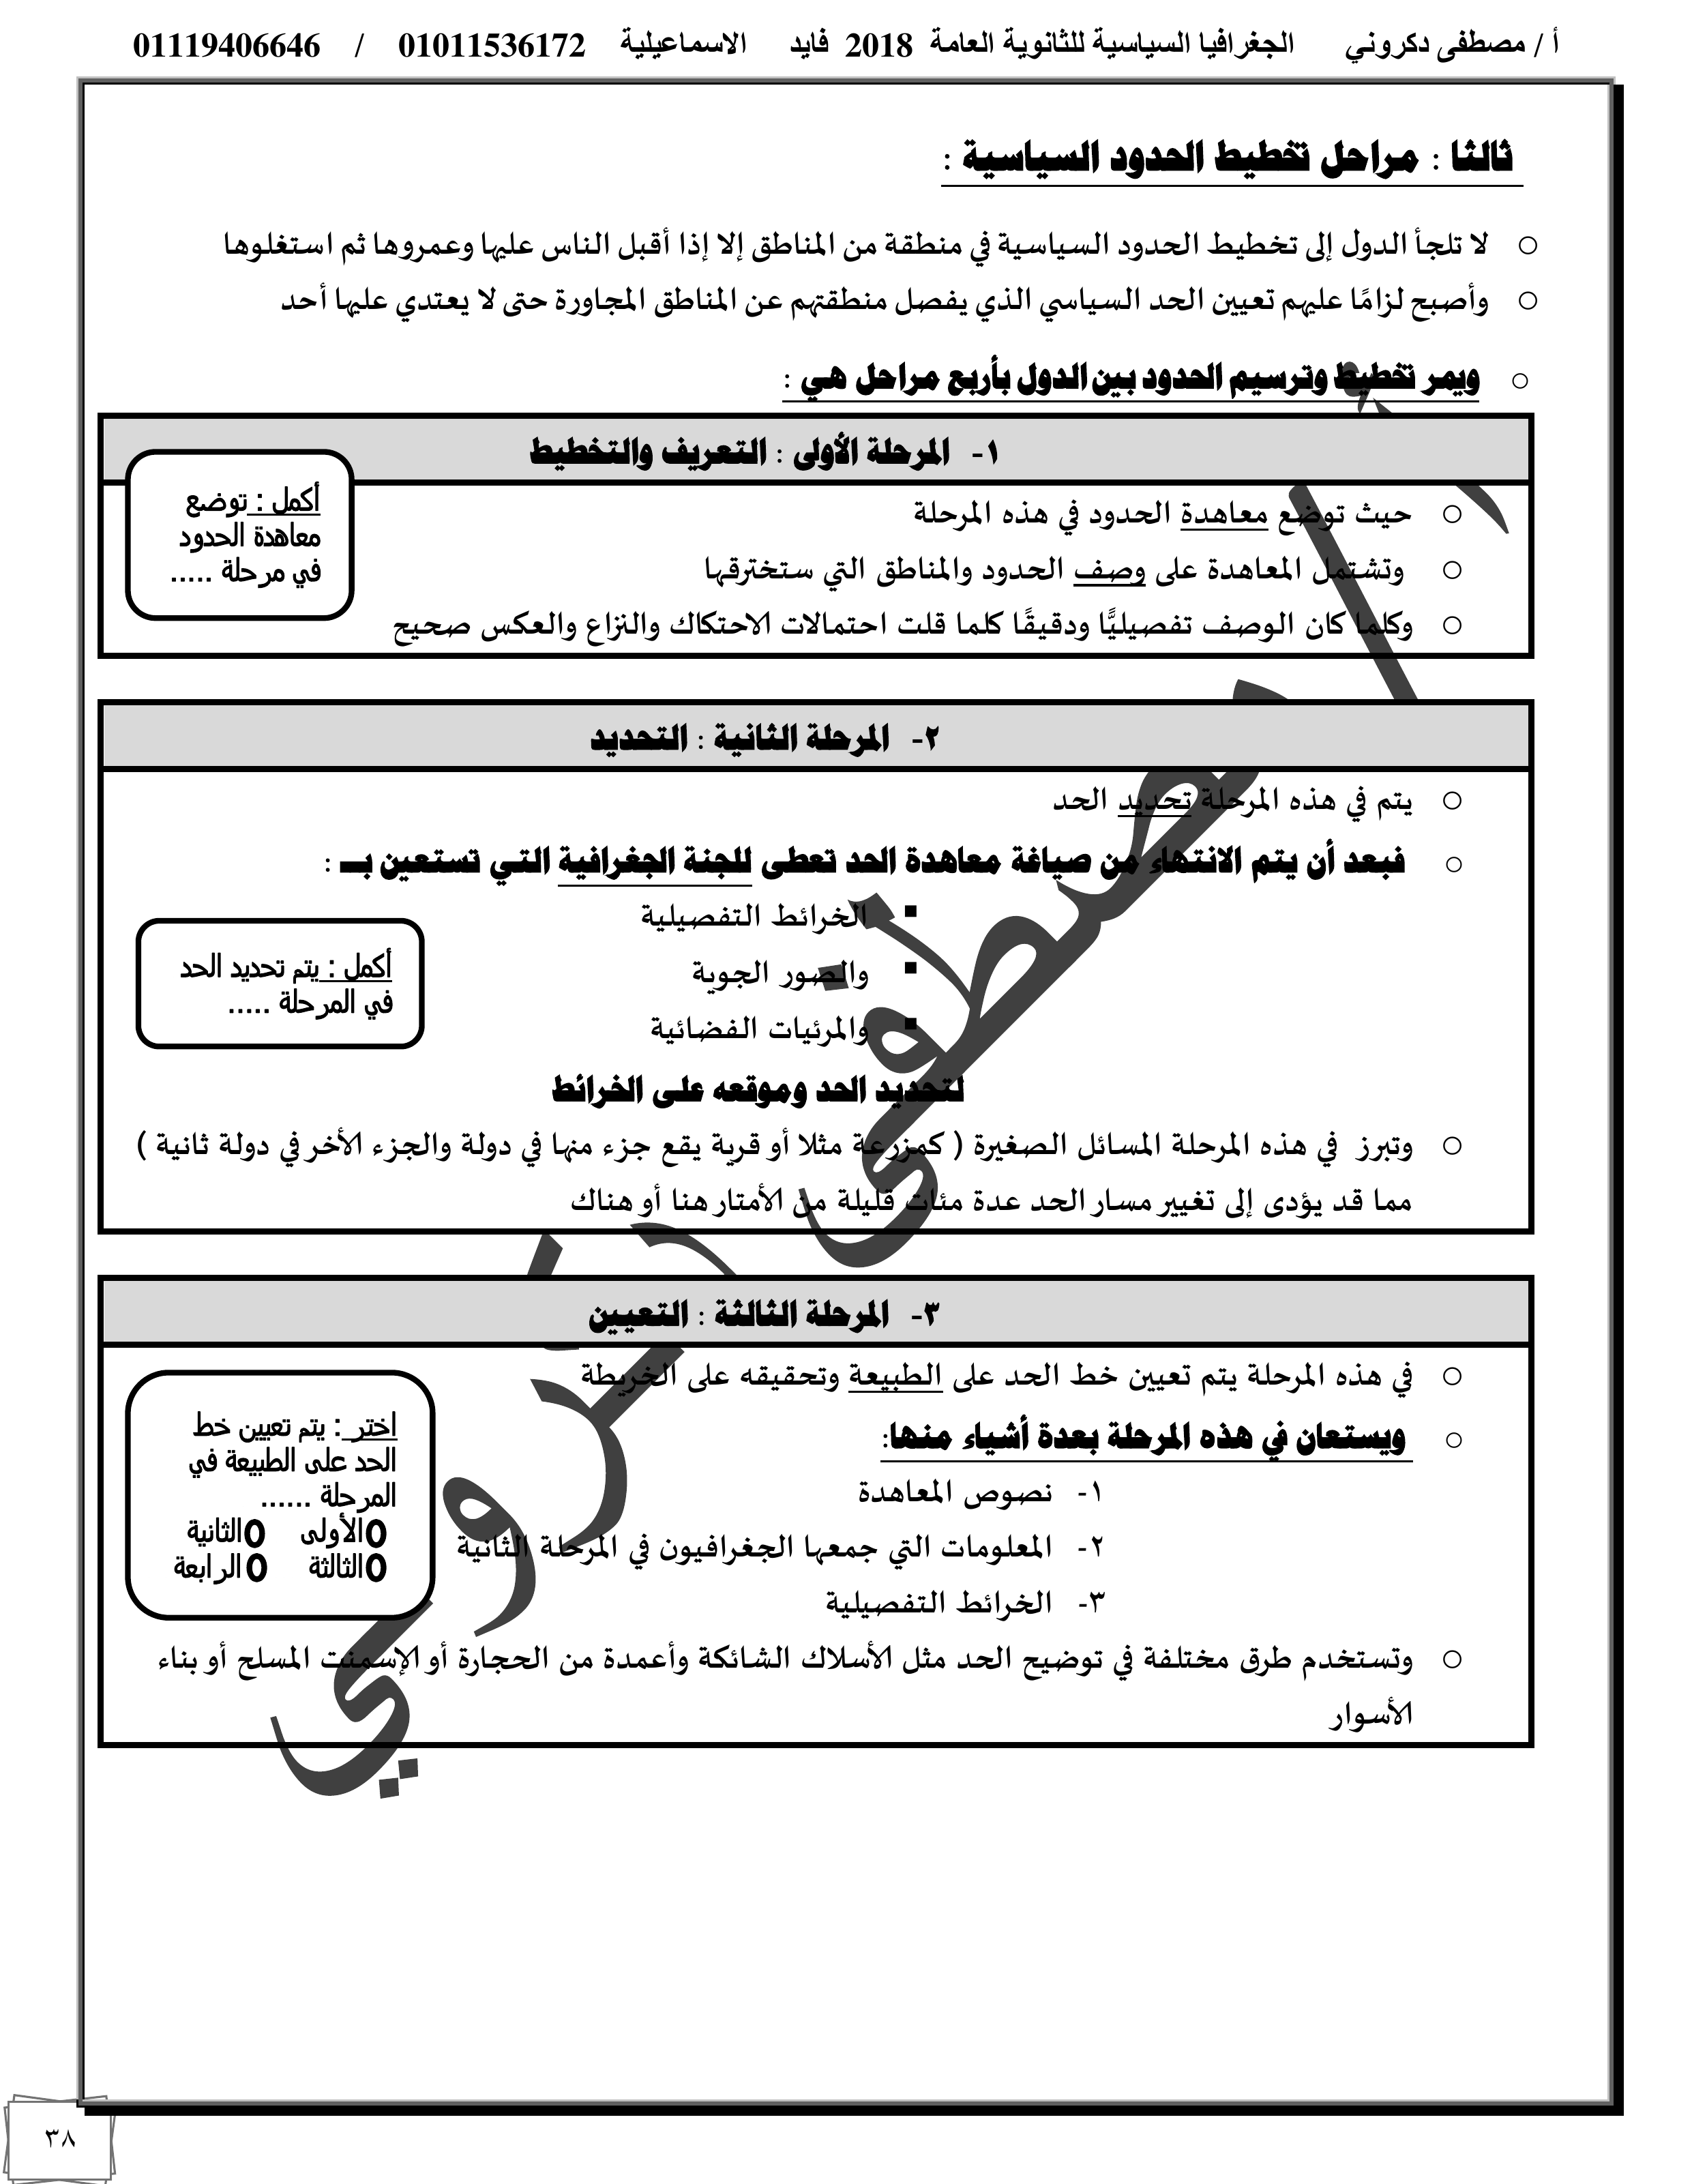 أ / مصطفى دكروني الجغرافيا السياسية للثانوية العامة 2018 فايد الاسماعيلية 01011536172 / 01119406646
ثالثا : مراحل تخطيط الحدود السياسية :
○ لا تلجأ الدول إلى تخطيط الحدود السياسية في منطقة من المناطق إلا إذا أقبل الناس عليها وعمروها ثم استغلوها
○ وأصبح لزامًا عليهم تعيين الحد السياسي الذي يفصل منطقتهم عن المناطق المجاورة حتى لا يعتدي عليها أحد
○ ويمر تخطيط وترسيم الحدود بين الدول بأربع مراحل هي :
١- المرحلة الأولى : التعريف والتخطيط
○ حيث توضع معاهدة الحدود في هذه المرحلة
○ وتشتمل المعاهدة على وصف الحدود والمناطق التي ستخترقها
○ وكلما كان الوصف تفصيليًّا ودقيقًا كلما قلت احتمالات الاحتكاك والنزاع والعكس صحيح
أكمل : توضع
معاهدة الحدود
في مرحلة .....
٢- المرحلة الثانية : التحديد
○ يتم في هذه المرحلة تحديد الحد
○ فبعد أن يتم الانتهاء من صياغة معاهدة الحد تعطى للجنة الجغرافية التي تستعين بـ :
▪ الخرائط التفصيلية
▪ والصور الجوية
▪ والمرئيات الفضائية
لتحديد الحد وموقعه على الخرائط
○ وتبرز في هذه المرحلة المسائل الصغيرة ( كمزرعة مثلا أو قرية يقع جزء منها في دولة والجزء الأخر في دولة ثانية )
مما قد يؤدى إلى تغيير مسار الحد عدة مئات قليلة من الأمتار هنا أو هناك
أكمل : يتم تحديد الحد
في المرحلة .....
٣- المرحلة الثالثة : التعيين
○ في هذه المرحلة يتم تعيين خط الحد على الطبيعة وتحقيقه على الخريطة
○ ويستعان في هذه المرحلة بعدة أشياء منها:
١- نصوص المعاهدة
٢- المعلومات التي جمعها الجغرافيون في المرحلة الثانية
٣- الخرائط التفصيلية
○ وتستخدم طرق مختلفة في توضيح الحد مثل الأسلاك الشائكة وأعمدة من الحجارة أو الإسمنت المسلح أو بناء
الأسوار
اختر : يتم تعيين خط
الحد على الطبيعة في
المرحلة ......
○الأولى ○الثانية
○الثالثة ○الرابعة
أ / مصطفى دكروني
٣٨